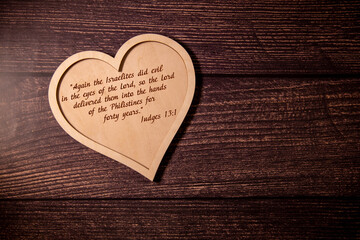 "Again the Israelites did evil
in the eyes of the Lord, so the Lord
delivered them into the hands
of the Philistines for
forty years."
Judges 13:1